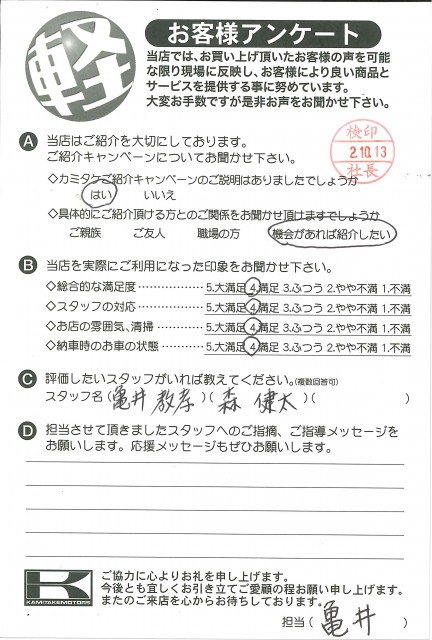 軽
お客様アンケート
当店では、お買い上げ頂いたお客様の声を可能
な限り現場に反映し、お客様により良い商品と
サービスを提供する事に努めています。
大変お手数ですが是非お声をお聞かせ下さい。
A 当店はご紹介を大切にしております。
ご紹介キャンペーンについてお聞かせ下さい。
検印
2.10.13
社長
◇カミタケご紹介キャンペーンのご説明はありましたでしょうか
はい いいえ
◇具体的にご紹介頂ける方とのご関係をお聞かせ頂けますでしょうか
ご親族 ご友人 職場の方 機会があれば紹介したい
B 当店を実際にご利用になった印象をお聞かせ下さい。
◇総合的な満足度……………… 5.大満足 4.満足 3.ふつう 2.やや不満 1.不満
◇スタッフの対応……………… 5.大満足 4.満足 3.ふつう 2.やや不満 1.不満
◇お店の雰囲気、清掃………… 5.大満足 4.満足 3.ふつう 2.やや不満 1.不満
◇納車時のお車の状態………… 5.大満足 4.満足 3.ふつう 2.やや不満 1.不満
C 評価したいスタッフがいれば教えてください。(複数回答可)
スタッフ名(亀井 教孝)(森 健太)( )
D 担当させて頂きましたスタッフへのご指摘、ご指導メッセージを
お願いします。応援メッセージもぜひお願いします。
K
KAMITAKEMOTORS
ご協力に心よりお礼を申し上げます。
今後とも宜しくお引き立てご愛顧の程お願い申し上げます。
またのご来店を心からお待ちしております。
担当(亀井)